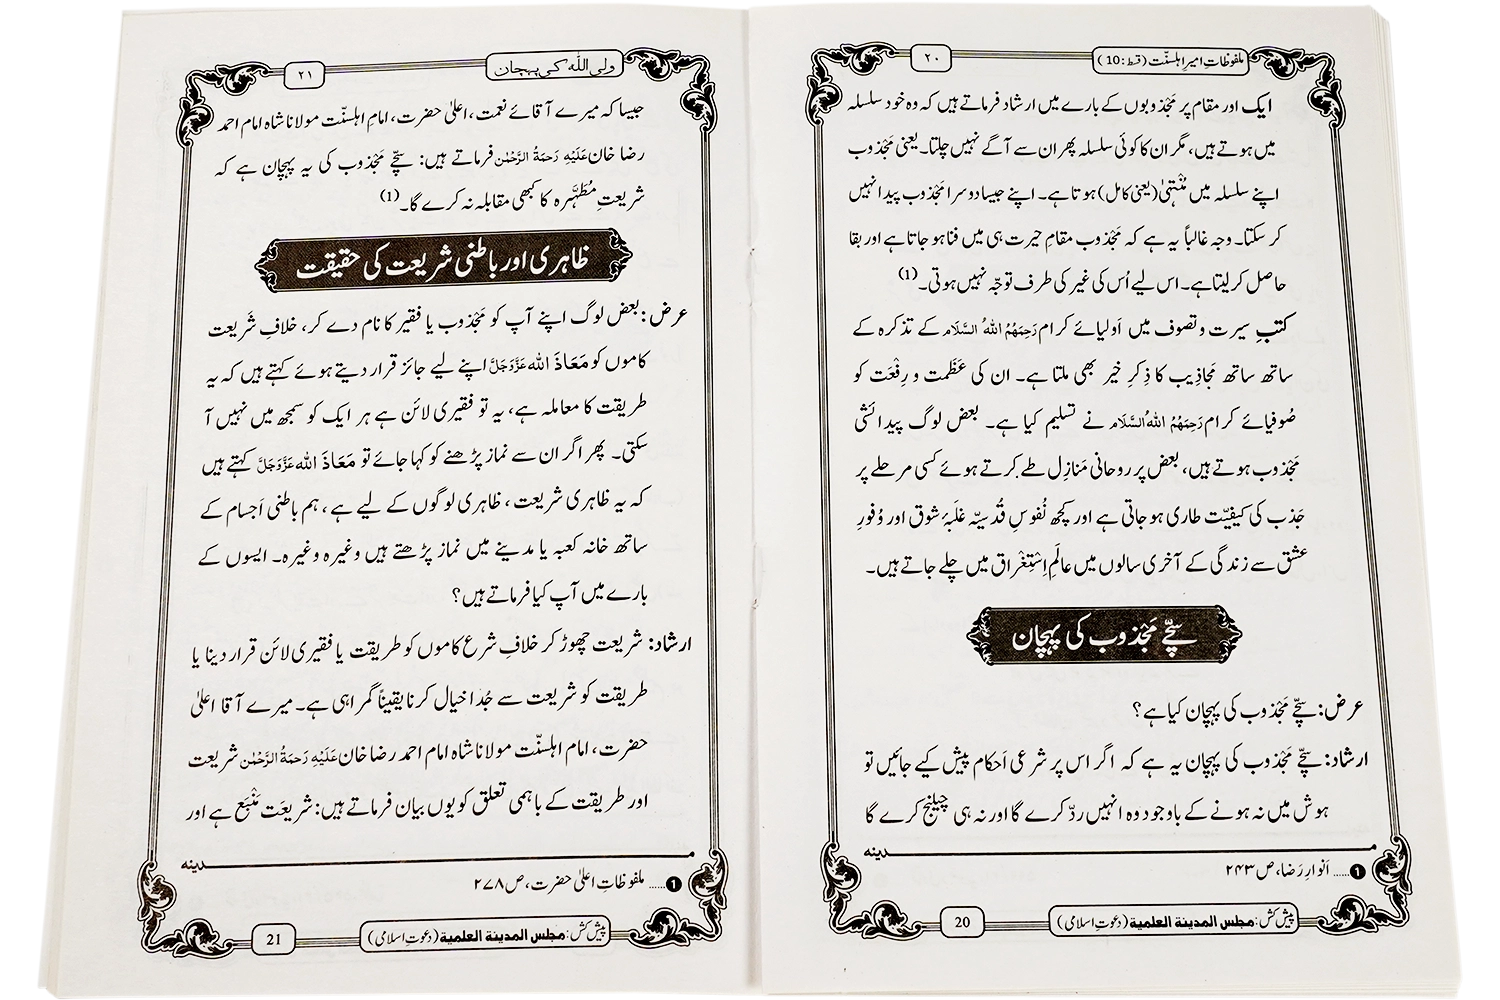 ملفوظاتِ امیرِ اہلسنّت (قسط:10)
۲۰
ایک اور مقام پر مَجْذوبوں کے بارے میں ارشاد فرماتے ہیں کہ وہ خود سلسلہ
میں ہوتے ہیں، مگر ان کا کوئی سلسلہ پھر ان سے آگے نہیں چلتا۔ یعنی مَجْذوب
اپنے سلسلہ میں مُنْتَہیٰ (یعنی کامل) ہوتا ہے۔ اپنے جیسا دوسرا مَجْذوب پیدا نہیں
کر سکتا۔ وجہ غالباً یہ ہے کہ مَجْذوب مقامِ حیرت ہی میں فنا ہو جاتا ہے اور بقا
حاصل کر لیتا ہے۔ اس لیے اُس کی غیر کی طرف توجّہ نہیں ہوتی۔(1)
کتبِ سیرت و تصوف میں اَولیائے کرام رَحِمَهُمُ اللهُ السَّلَام کے تذکرہ کے
ساتھ ساتھ مَجاذِیب کا ذِکرِ خیر بھی ملتا ہے۔ ان کی عَظَمت و رِفْعَت کو
صُوفیائے کرام رَحِمَهُمُ اللهُ السَّلَام نے تسلیم کیا ہے۔ بعض لوگ پیدائشی
مَجْذوب ہوتے ہیں، بعض پر روحانی مَنازِل طے کرتے ہوئے کسی مرحلے پر
جَذب کی کیفیّت طاری ہو جاتی ہے اور کچھ نُفوسِ قُدسیّہ غَلَبۂ شوق اور وُفورِ
عشق سے زندگی کے آخری سالوں میں عالَمِ اِسْتِغْراق میں چلے جاتے ہیں۔
سچّے مَجْذوب کی پہچان
عرض: سچّے مَجْذوب کی پہچان کیا ہے؟
ارشاد: سچّے مَجْذوب کی پہچان یہ ہے کہ اگر اس پر شرعی اَحکام پیش کیے جائیں تو
ہوش میں نہ ہونے کے باوجود وہ انہیں ردّ کرے گا اور نہ ہی چیلنج کرے گا
مدینہ
1 ..... اَنوارِ رَضا، ص ۲۴۳
پیش کش: مجلس المدینة العلمیة (دعوتِ اسلامی)
20
ولی اللہ کی پہچان
۲۱
جیسا کہ میرے آقائے نعمت، اعلیٰ حضرت، امامِ اہلسنّت مولانا شاہ امام احمد
رضا خان عَلَيْهِ رَحمَةُ الرَّحْمٰن فرماتے ہیں: سچّے مَجْذوب کی یہ پہچان ہے کہ
شریعتِ مُطَہَّرہ کا کبھی مقابلہ نہ کرے گا۔(1)
ظاہری اور باطنی شریعت کی حقیقت
عرض: بعض لوگ اپنے آپ کو مَجْذوب یا فقیر کا نام دے کر، خلافِ شَریعت
کاموں کو مَعَاذَ اللہ عَزَّوَجَلَّ اپنے لیے جائز قرار دیتے ہوئے کہتے ہیں کہ یہ
طریقت کا معاملہ ہے، یہ تو فقیری لائن ہے ہر ایک کو سمجھ میں نہیں آ
سکتی۔ پھر اگر ان سے نماز پڑھنے کو کہا جائے تو مَعَاذَ اللہ عَزَّوَجَلَّ کہتے ہیں
کہ یہ ظاہری شریعت، ظاہری لوگوں کے لیے ہے، ہم باطنی اَجسام کے
ساتھ خانہ کعبہ یا مدینے میں نماز پڑھتے ہیں وغیرہ وغیرہ۔ ایسوں کے
بارے میں آپ کیا فرماتے ہیں؟
ارشاد: شریعت چھوڑ کر خلافِ شرع کاموں کو طریقت یا فقیری لائن قرار دینا یا
طریقت کو شریعت سے جُدا خیال کرنا یقیناً گمراہی ہے۔ میرے آقا اعلیٰ
حضرت، امام اہلسنّت مولانا شاہ امام احمد رضا خان عَلَيْهِ رَحمَةُ الرَّحْمٰن شریعت
اور طریقت کے باہمی تعلق کو یوں بیان فرماتے ہیں: شریعَت مَنْبَع ہے اور
مدینہ
1 ..... ملفوظاتِ اعلیٰ حضرت، ص ۲۷۸
پیش کش: مجلس المدینة العلمیة (دعوتِ اسلامی)
21